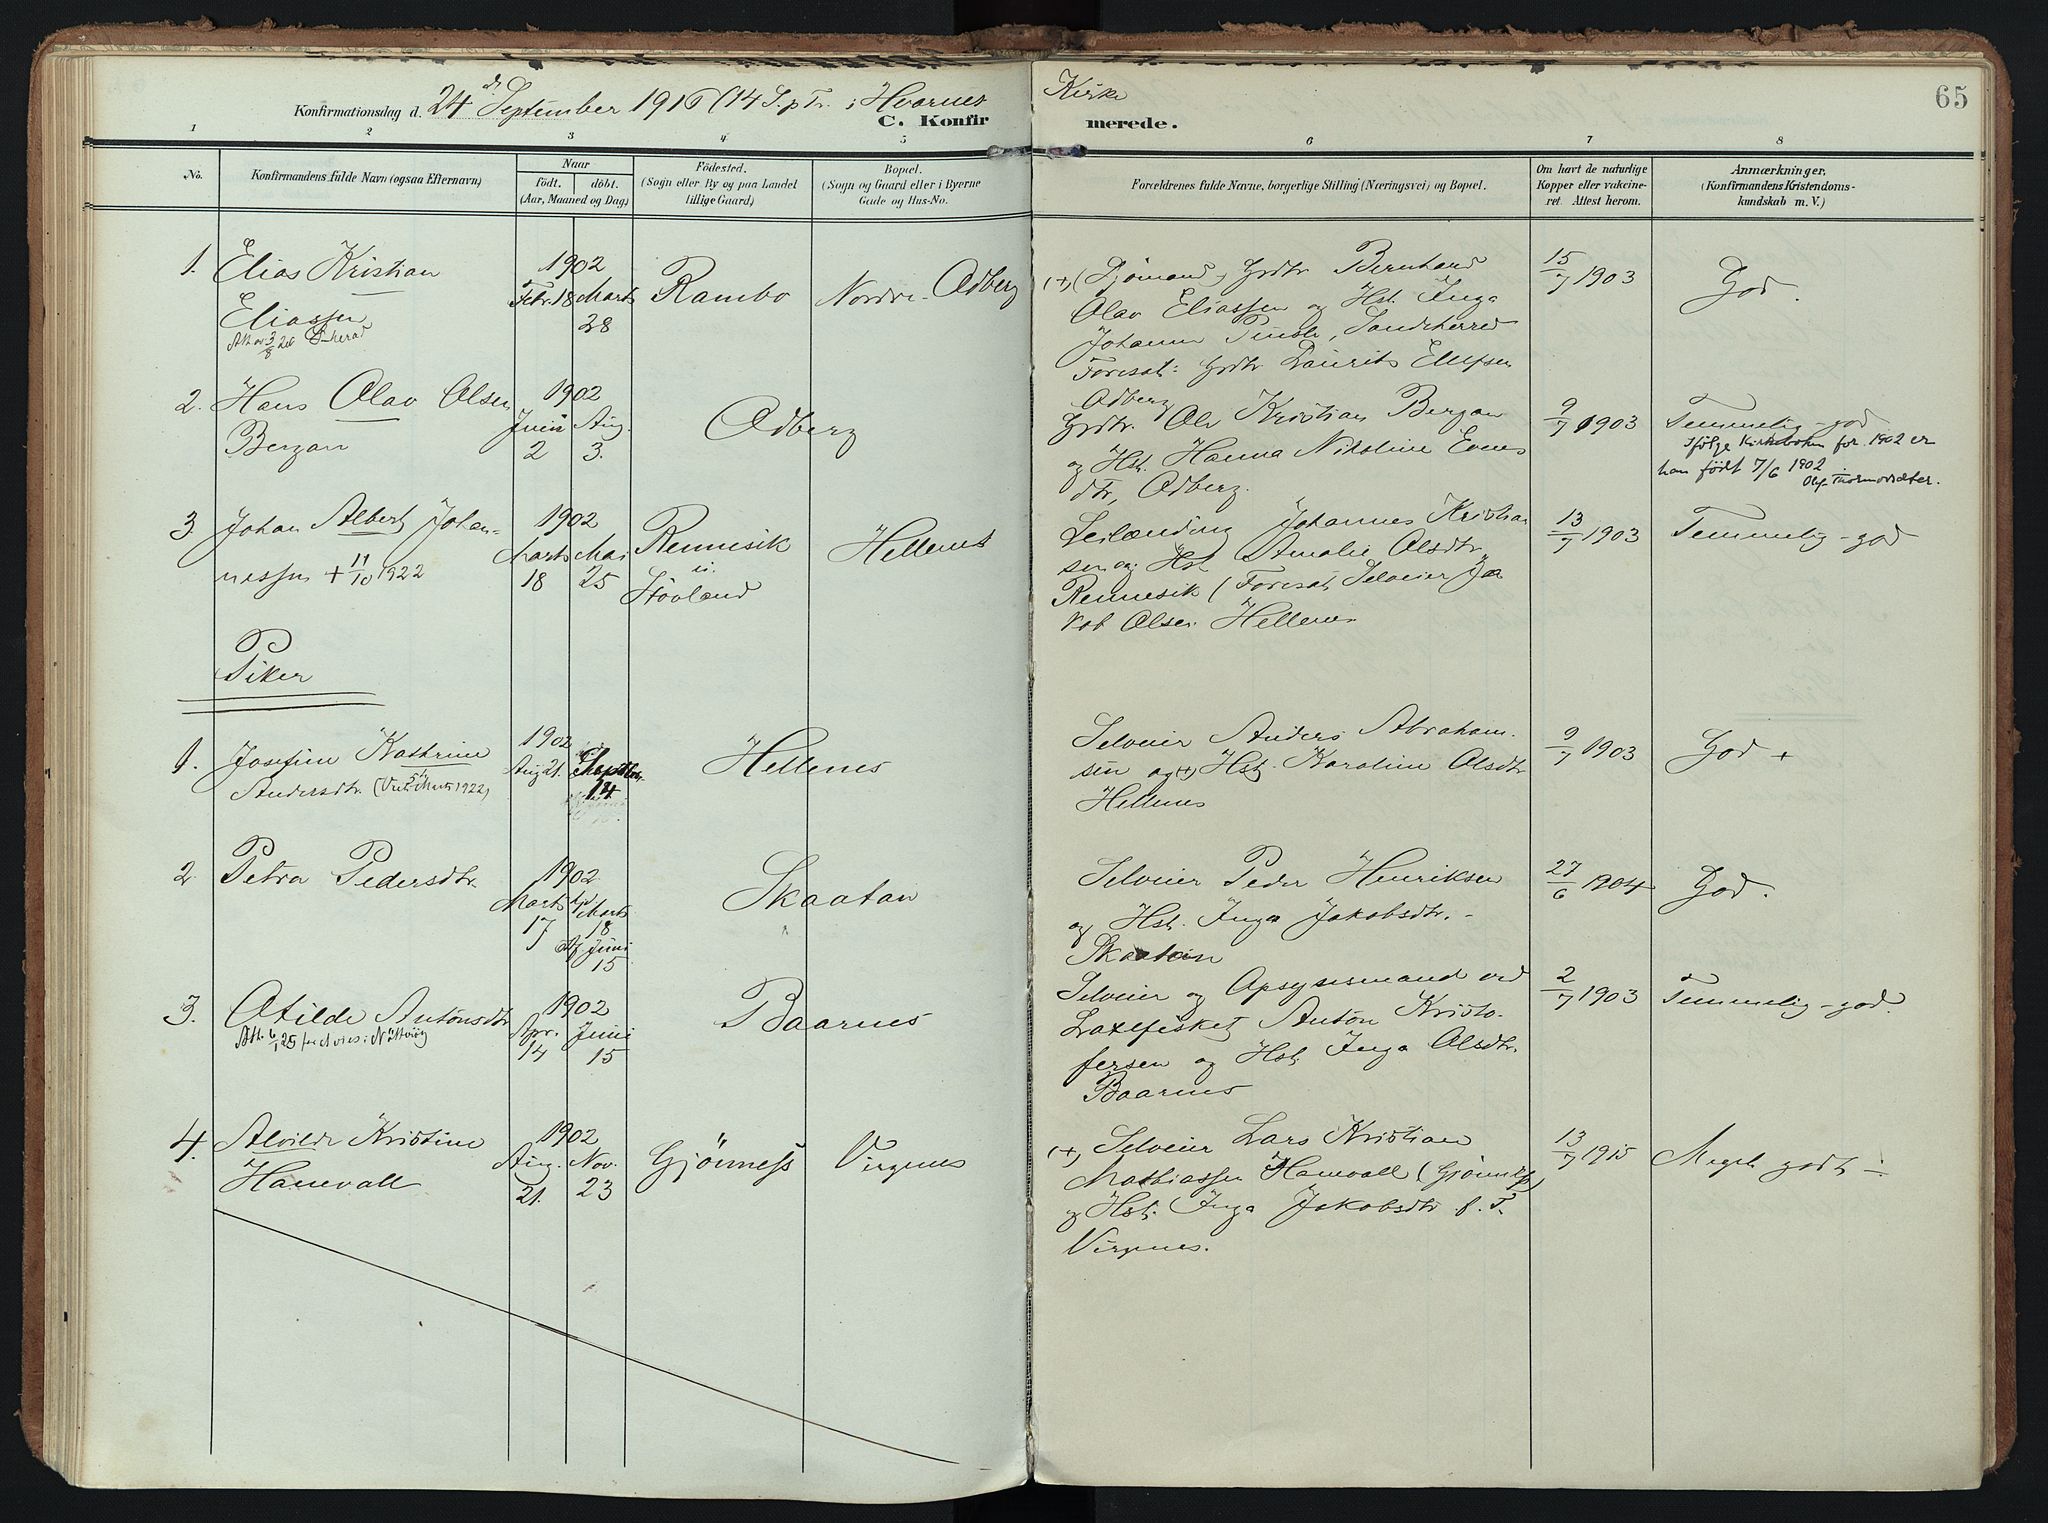 Konfirmationsdag d. 24de September 1916 (14 S. p Tr. i Hvarnes Kirke
65
C. Konfirmerede.
1 2 3 4 5 6 7 8
No.
Konfirmandens fulde Navn (ogsaa Efternavn)
Naar
födt. döbt.
(Aar, Maaned og Dag)
Födested.
(Sogn eller By og paa Landet
tillige Gaard)
Bopæl.
(Sogn og Gaard eller i Byerne
Gade og Hus-No.
Forældrenes fulde Navne, borgerlige Stilling (Næringsvei) og Bopæl.
Om havt de naturlige
Kopper eller vakcine-
ret. Attest herom.
Anmærkninger,
(Konfirmandens Kristendoms-
kundskab m. V.)
1. Elias Kristian
Eliassen
1902
Febr. 18 Marts
28
Rambo
Nordre Odberg
(+) Grdbr Bernhard
Olav Eliassen og Hst. Inga
Johanne Sandeherred
Foresat: Grdbr Laurits Ellefsen
Odberg
15/7 1903
God.
2. Hans Olav Olsen
Bergan
1902
Juni Aug.
2 3.
Odberg
Grdbr. Ole Kristian Bergan
og Hst. Hanna Nikoline Evens
dtr, Odberg.
9/7 1903
Temmelig-god
Ifölge Kirkeboken for 1902 er
han födt 7/6 1902
3. Johan Albert Johan-
nessen + 11/10 1922
1902
Marts Mai
18 25
Rennesik
i
Stövland
Hellenes
Leilænding Johannes Kristian
sen og Hst. Amalie Olsdtr
Rennesik (Foresat Selveier Ja
kob Olsen Hellenes
13/7 1903
Temmelig-god
Piker
1. Josefine Kathrine
Andersdtr. (Viet Marts 1922)
1902
Aug 21. Septbr.
14
Hellenes
Selveier Anders Abraham-
sen og (+) Hst. Karoline Olsdtr
Hellenes
9/7 1903
God +
2. Petra Pedersdtr.
1902
Marts Marts
17 18
Juni
15
Skaatan
Selveier Peder Henriksen
og Hst. Inga Jakobsdtr. -
Skaatan
27/6 1904
God.
3. Otilde Antonsdtr
Att. 6/1 25
1902
Apr. Juni
14 15
Baarnes
Selveier og Opsynsmand ved
Laxefisket Anton Kristo-
fersen og Hst. Inga Olsdtr.
Baarnes
2/7 1903
Temmelig-god.
4. Alvilde Kristine
Hanevall
1902
Aug. Nov.
21. 23
Gjönness
Virgenes
(+) Selveier Lars Kristian
Mathiassen Hanevall (Gjönness)
og Hst. Inga Jakobsdtr f. T.
Virgenes.
13/7 1915
Meget godt -